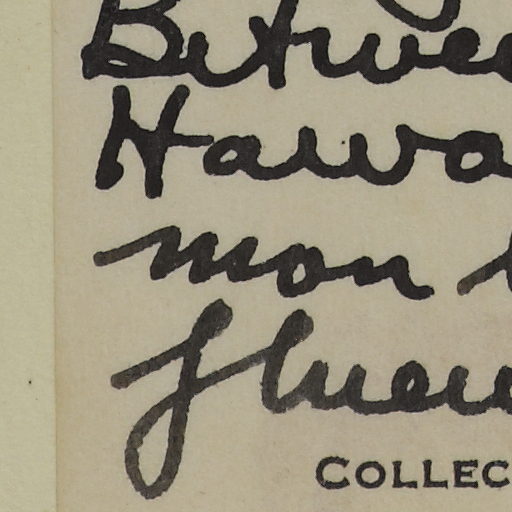 Betwee
Hawa
mon
fluen
COLLEC